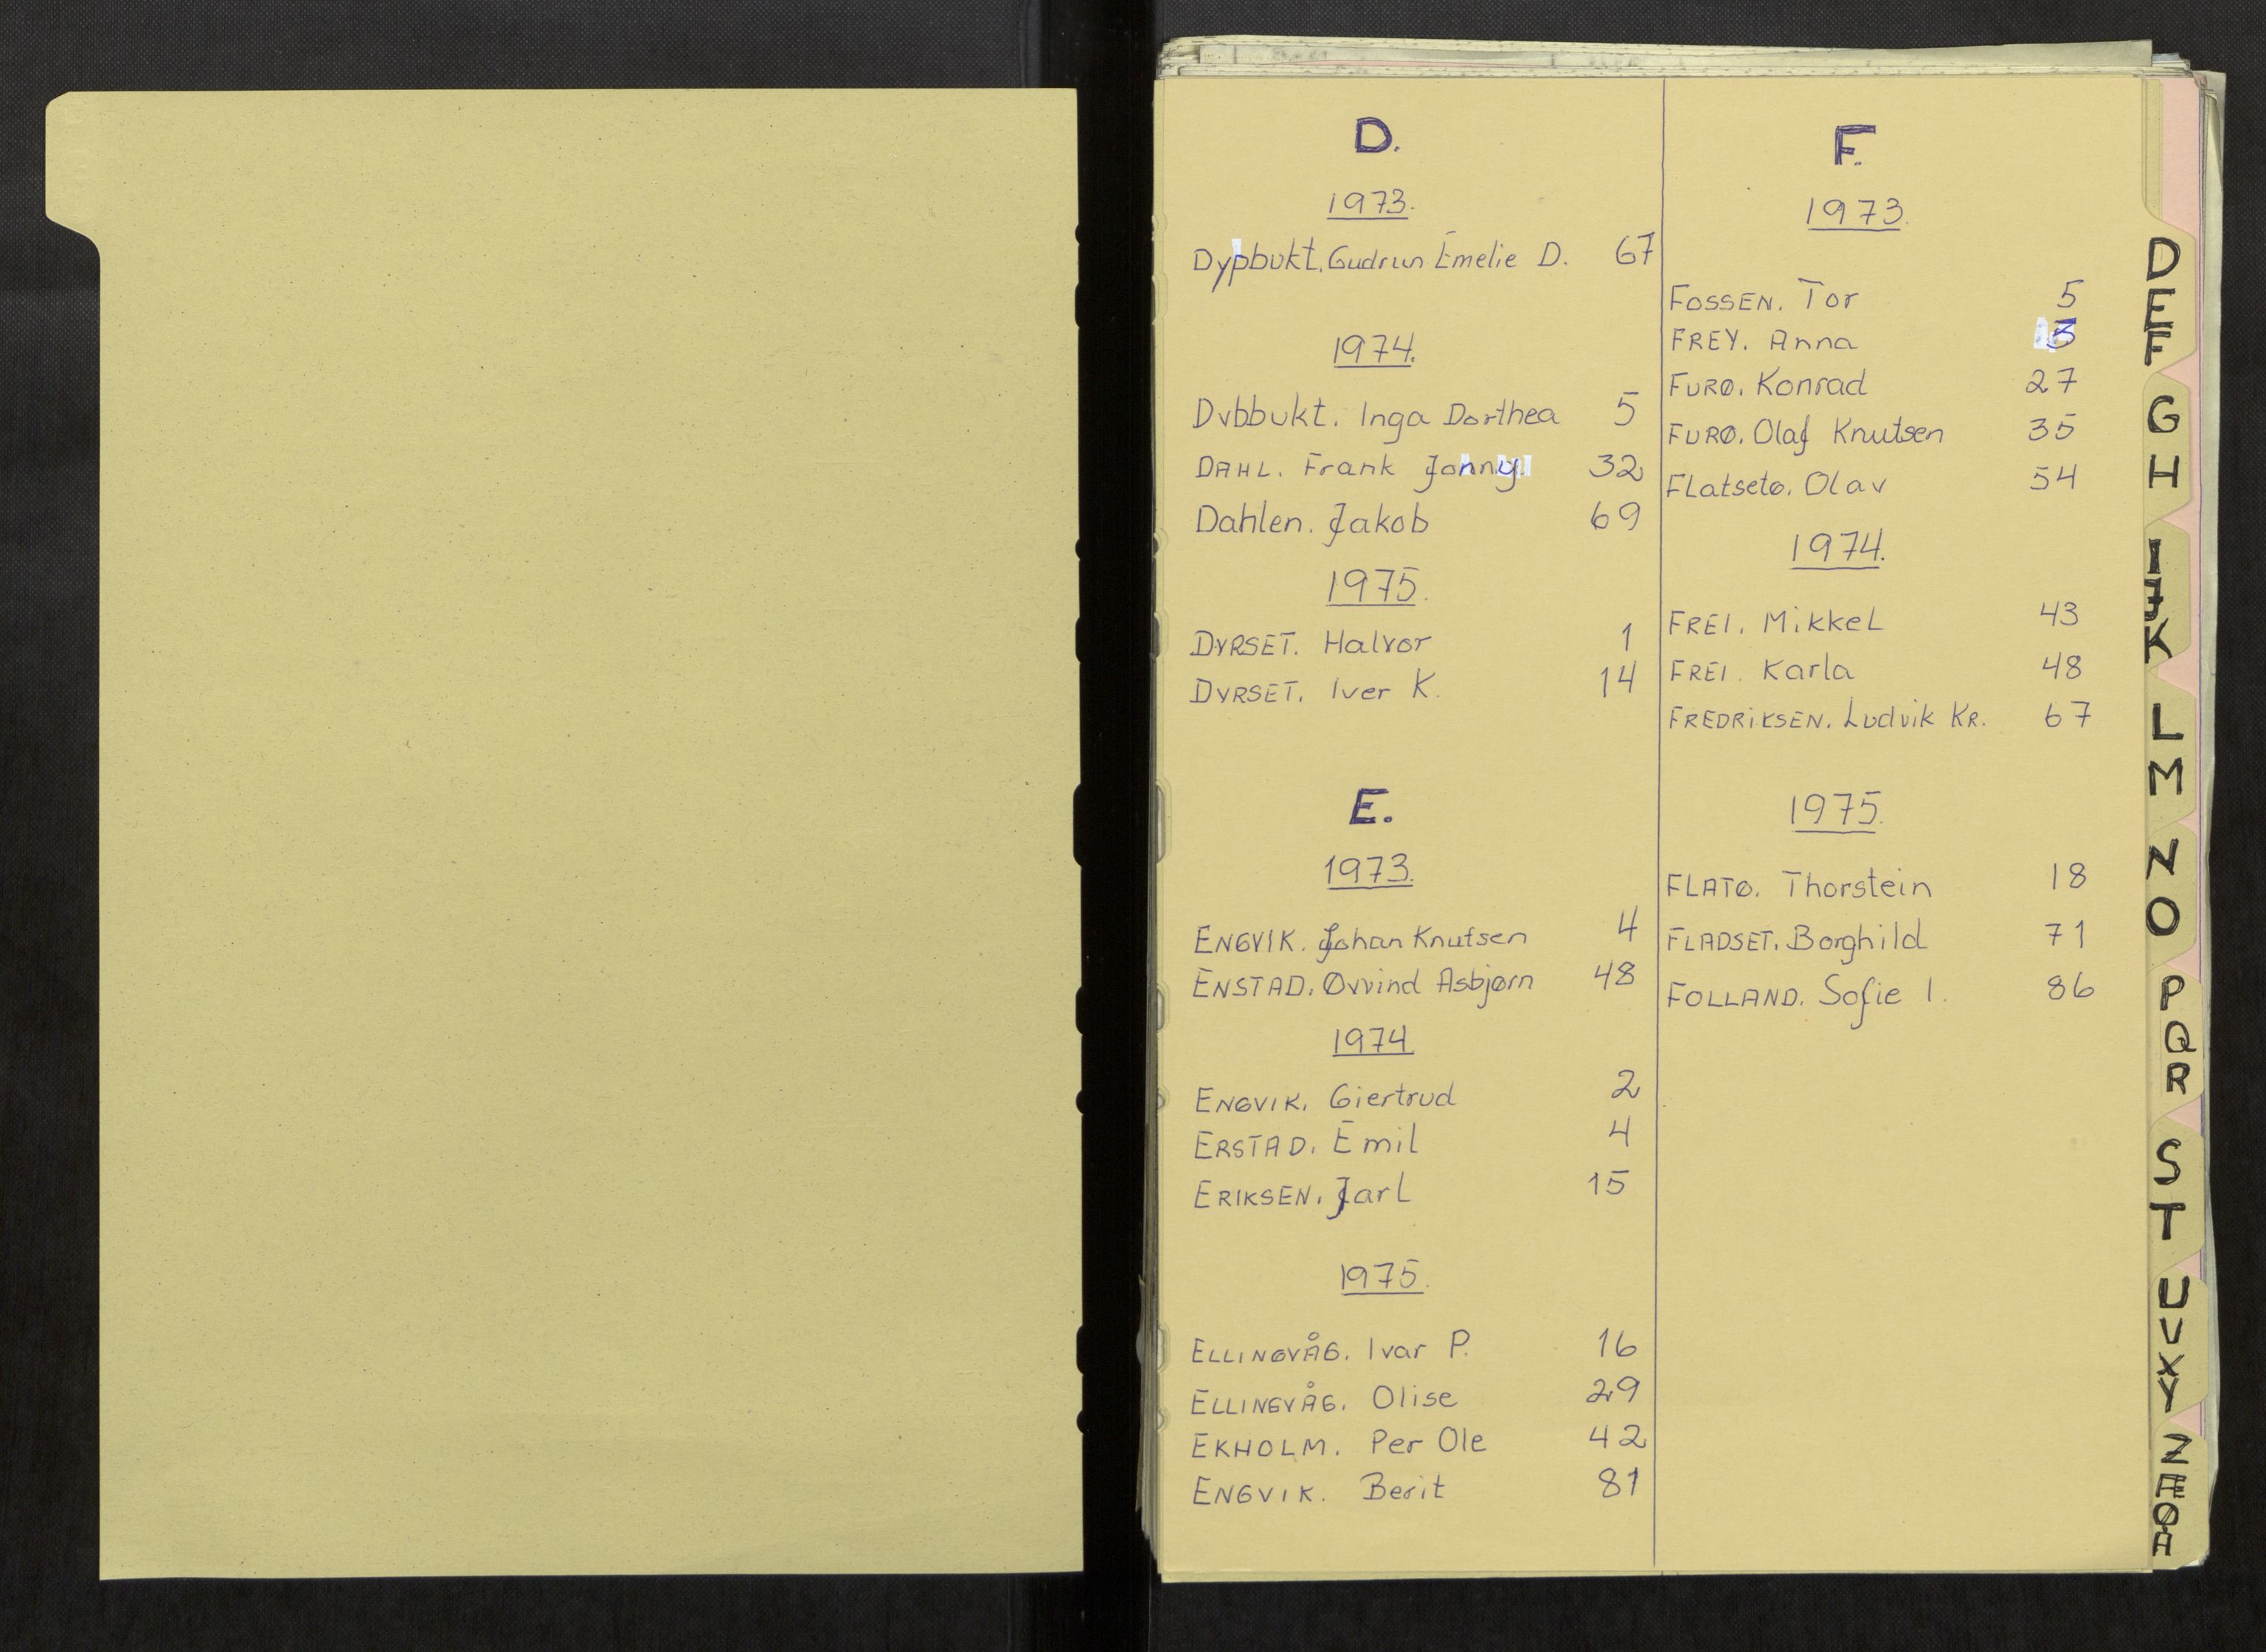 D.
1973.
Dypbukt. Gudrun Emelie D. 67
1974.
Dybbukt. Inga Dorthea 5
DAHL. Frank Jonny. 32
Dahlen. Jakob 69
1975.
DYRSET. Halvor 1
DYRSET. Iver K. 14
E.
1973.
ENGVIK. Johan Knutsen 4
ENSTAD. Øyvind Asbjørn 48
1974
ENGVIK. Giertrud 2
ERSTAD. Emil 4
ERIKSEN. Jarl 15
1975.
ELLINGVÅG. Ivar P. 16
ELLINGVÅG. Olise 29
EKHOLM. Per Ole 42
ENGVIK. Berit 81
F.
1973.
FOSSEN. Tor 5
FREY. Anna 13
FURØ. Konrad 27
FURØ. Olaf Knutsen 35
FLatsetø. Olav 54
1974.
FREI. MikkeL 43
FREI. Karla 48
FREDRiKSEN. Ludvik KR. 67
1975.
FLATØ. Thorstein 18
FLADSET. Borghild 71
FOLLAND. Sofie I. 86
D
E
F
G
H
I
J
K
L
M
N
O
P
Q
R
S
T
U
V
X
Y
Z
Æ
Ø
Å